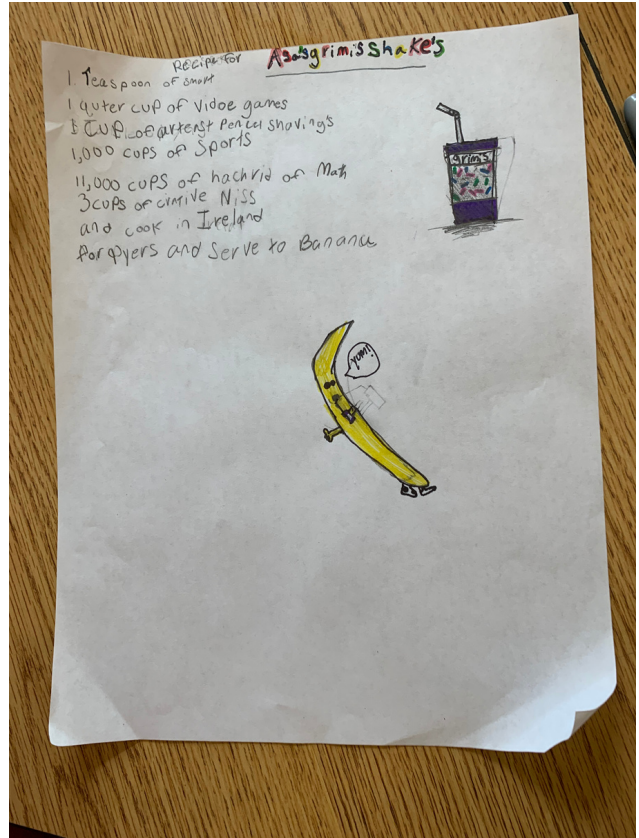 Recipe for Asa's grimis Shake's
1 Teaspoon of smart
1 quter cup of Vidoe games
1 Cup of artenst Pencel Shaving's
1,000 cups of Sports
11,000 cups of hachrid of Math
3 cups of cirntive Niss
and cook in Ireland
for 9yers and Serve to Banana
grimis
yum!